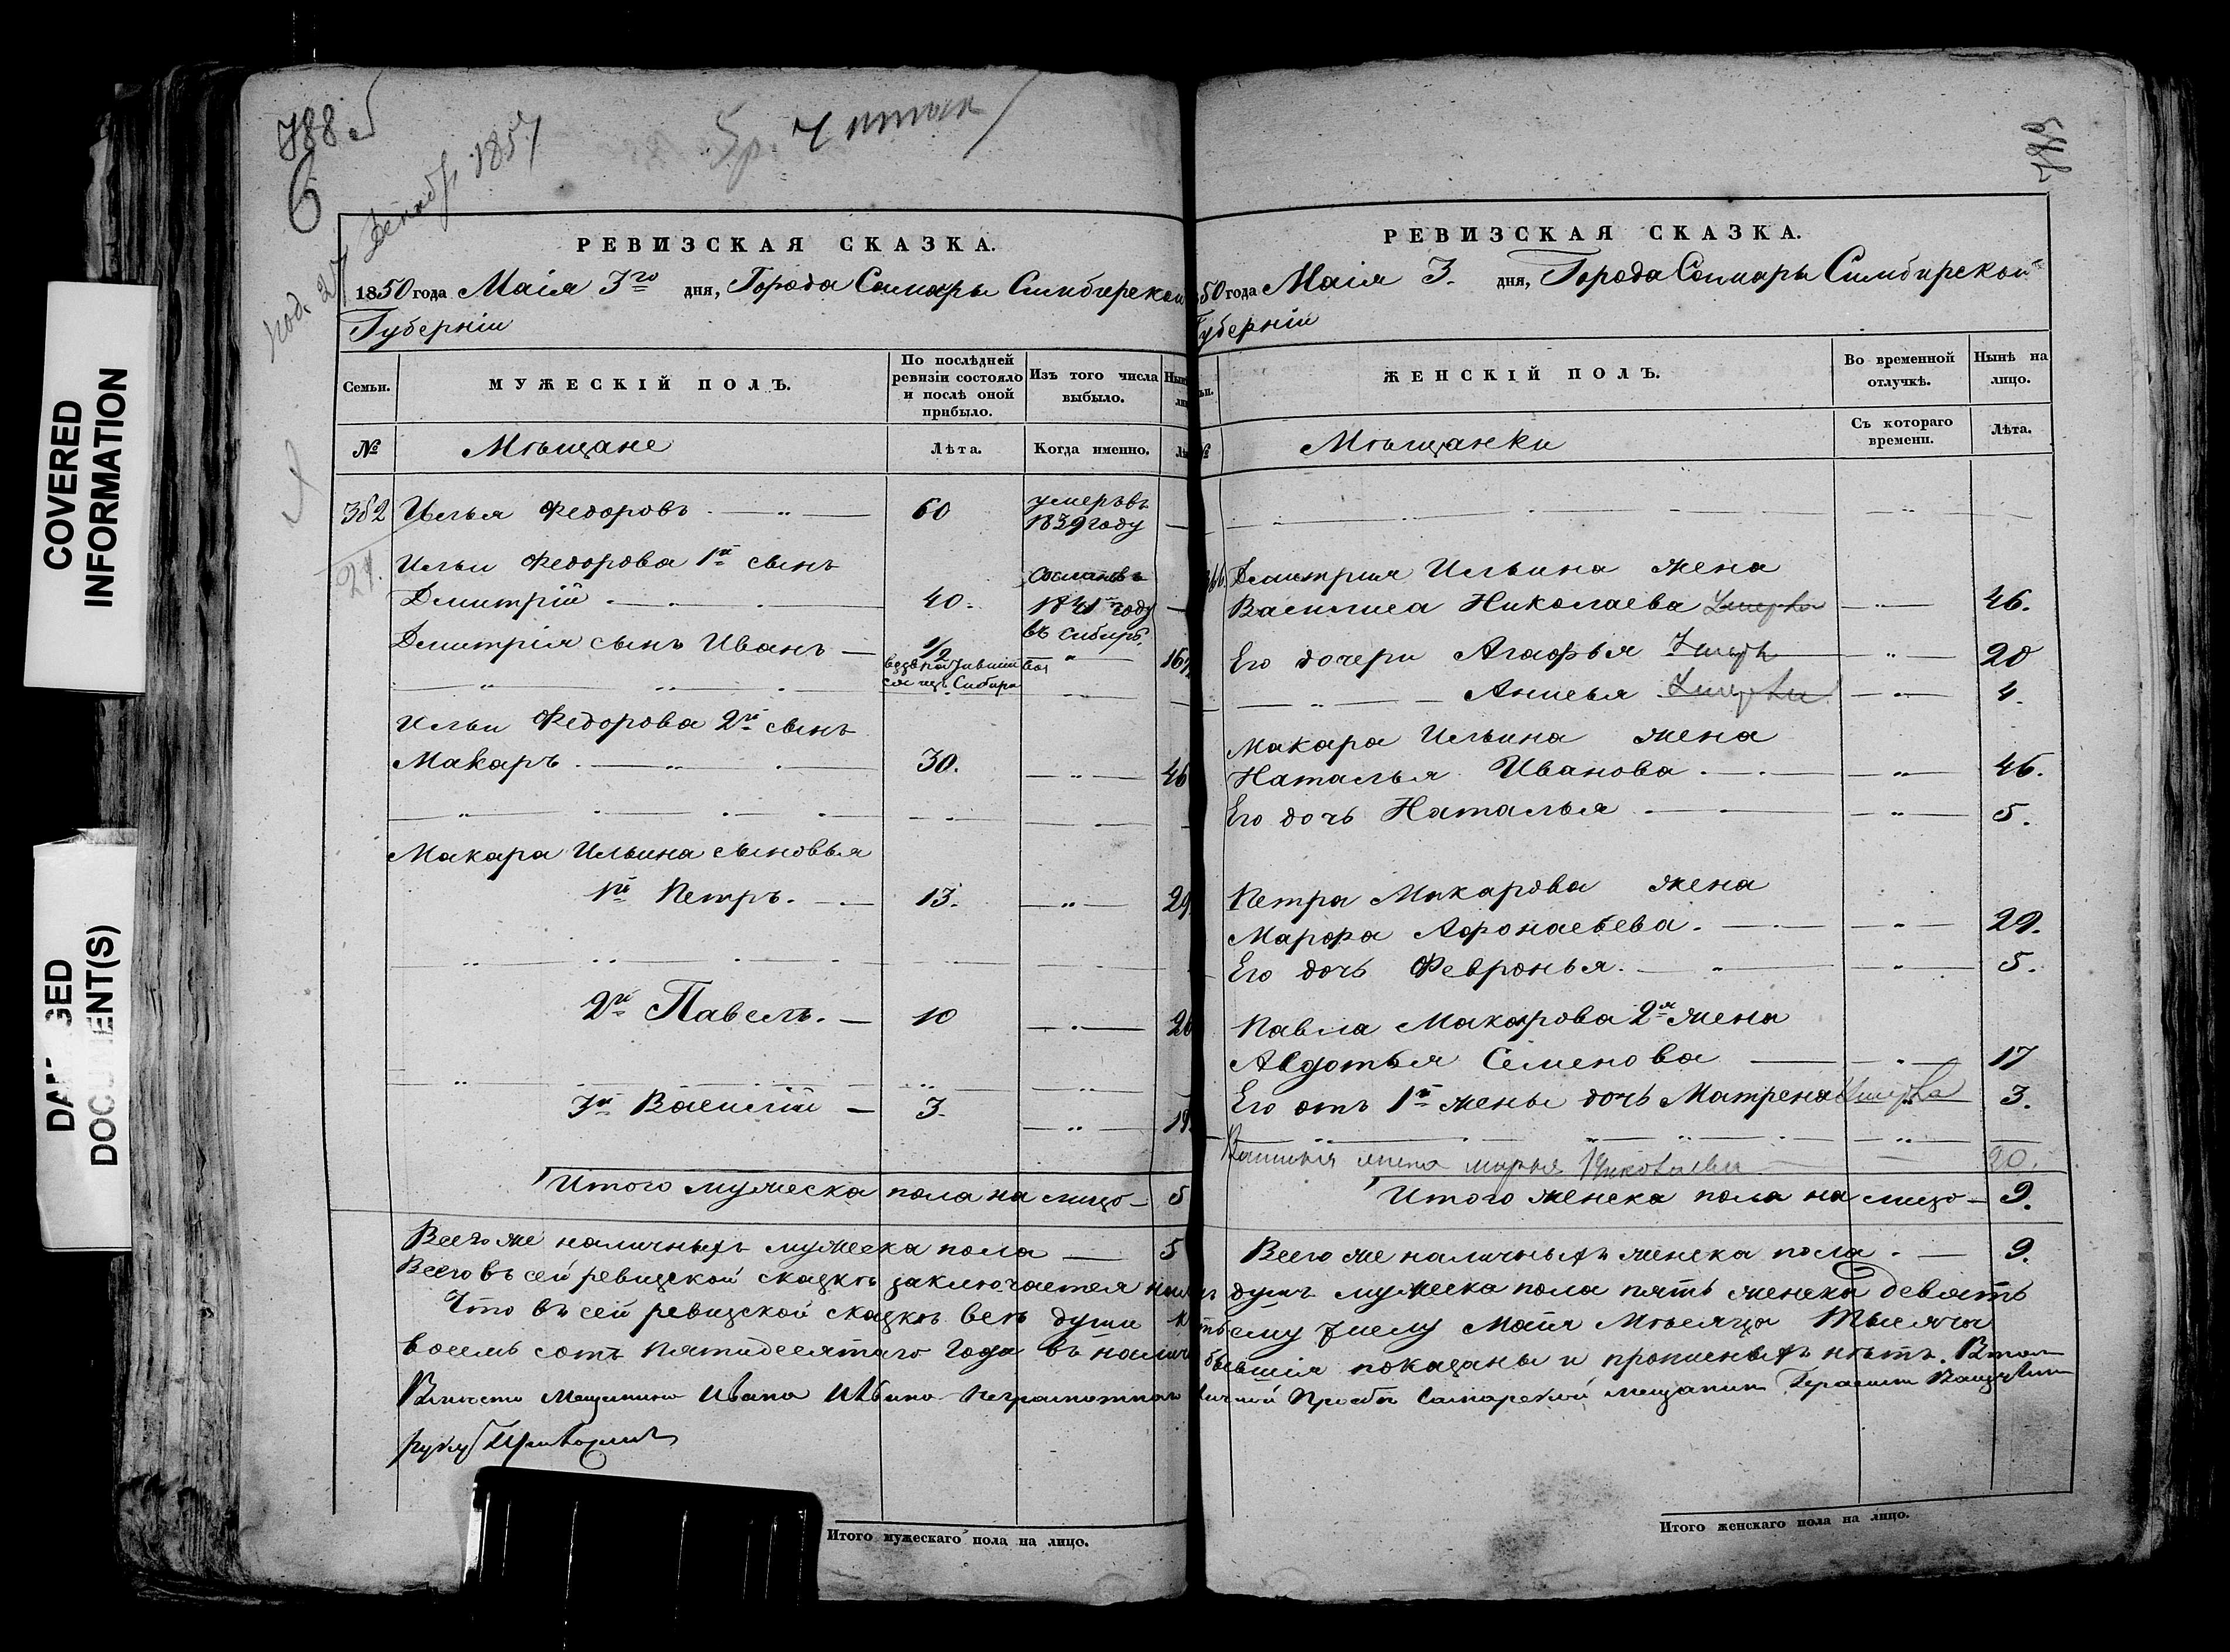 COVERED
INFORMATION
DOCUMENT(S)
788
6
РЕВИЗСКАЯ СКАЗКА.
1850 года Маія 3го дня, Города Самары Симбирской
Губерніи
Семьи.
МУЖЕСКІЙ ПОЛЪ.
По послѣдней
ревизіи состояло
и послѣ оной
прибыло.
Изъ того числа
выбыло.
№
Мѣщане
Лѣта.
Когда именно.
362 Илья Федоровъ 60 умеръ въ
1839 году
Ильи Федорова 1й сынъ
Дмитрій 40. Сосланъ въ
1841 году
въ Сибирь.
Дмитрія сынъ Иванъ 1/2 16 1/2
Ильи Федорова 2й сынъ
Макаръ 30. 46
Макара Ильина сыновья
1й Петръ. 13. 29
2й Павелъ. 10 26
3й Василій 3. 19
Итого мужеска пола на лицо 5
Всего же наличныхъ мужеска пола 5
Всего въ сей ревизской сказкѣ заключается
Что въ сей ревизской сказкѣ всѣ души
восемь сотъ пятидесятаго года въ
Вместо Мещанина Ивана
руку приложилъ
Итого мужескаго пола на лицо.
РЕВИЗСКАЯ СКАЗКА.
50 года Маія 3. дня, Города Самары Симбирской
Губерніи
ЖЕНСКІЙ ПОЛЪ.
Во временной
отлучкѣ.
Нынѣ на
лицо.
Мѣщанки
Съ котораго
времени.
Лѣта.
Дмитрія Ильина жена
Василиса Николаева умерла 46.
Его дочери Агафья 20
Анисья 4.
Макара Ильина жена
Наталья Иванова 46.
Его дочь Наталья 5.
Петра Макарова жена
Марфа Афонасьева. 29.
Его дочь Февронья. 5.
Павла Макарова 2я жена
Авдотья Семенова 17
Его отъ 1й жены дочь Матрена умерла 3.
Василья жена Марья 20.
Итого женска пола на лицо 9.
Всего же наличныхъ женска пола. 9.
душъ мужеска пола пять женска девять
сему числу Маія Мѣсяца Тысяча
бывшія показаны и прописныхъ нѣтъ.
личной просьбе Самарской мещанин Герасим
Итого женскаго пола на лицо.